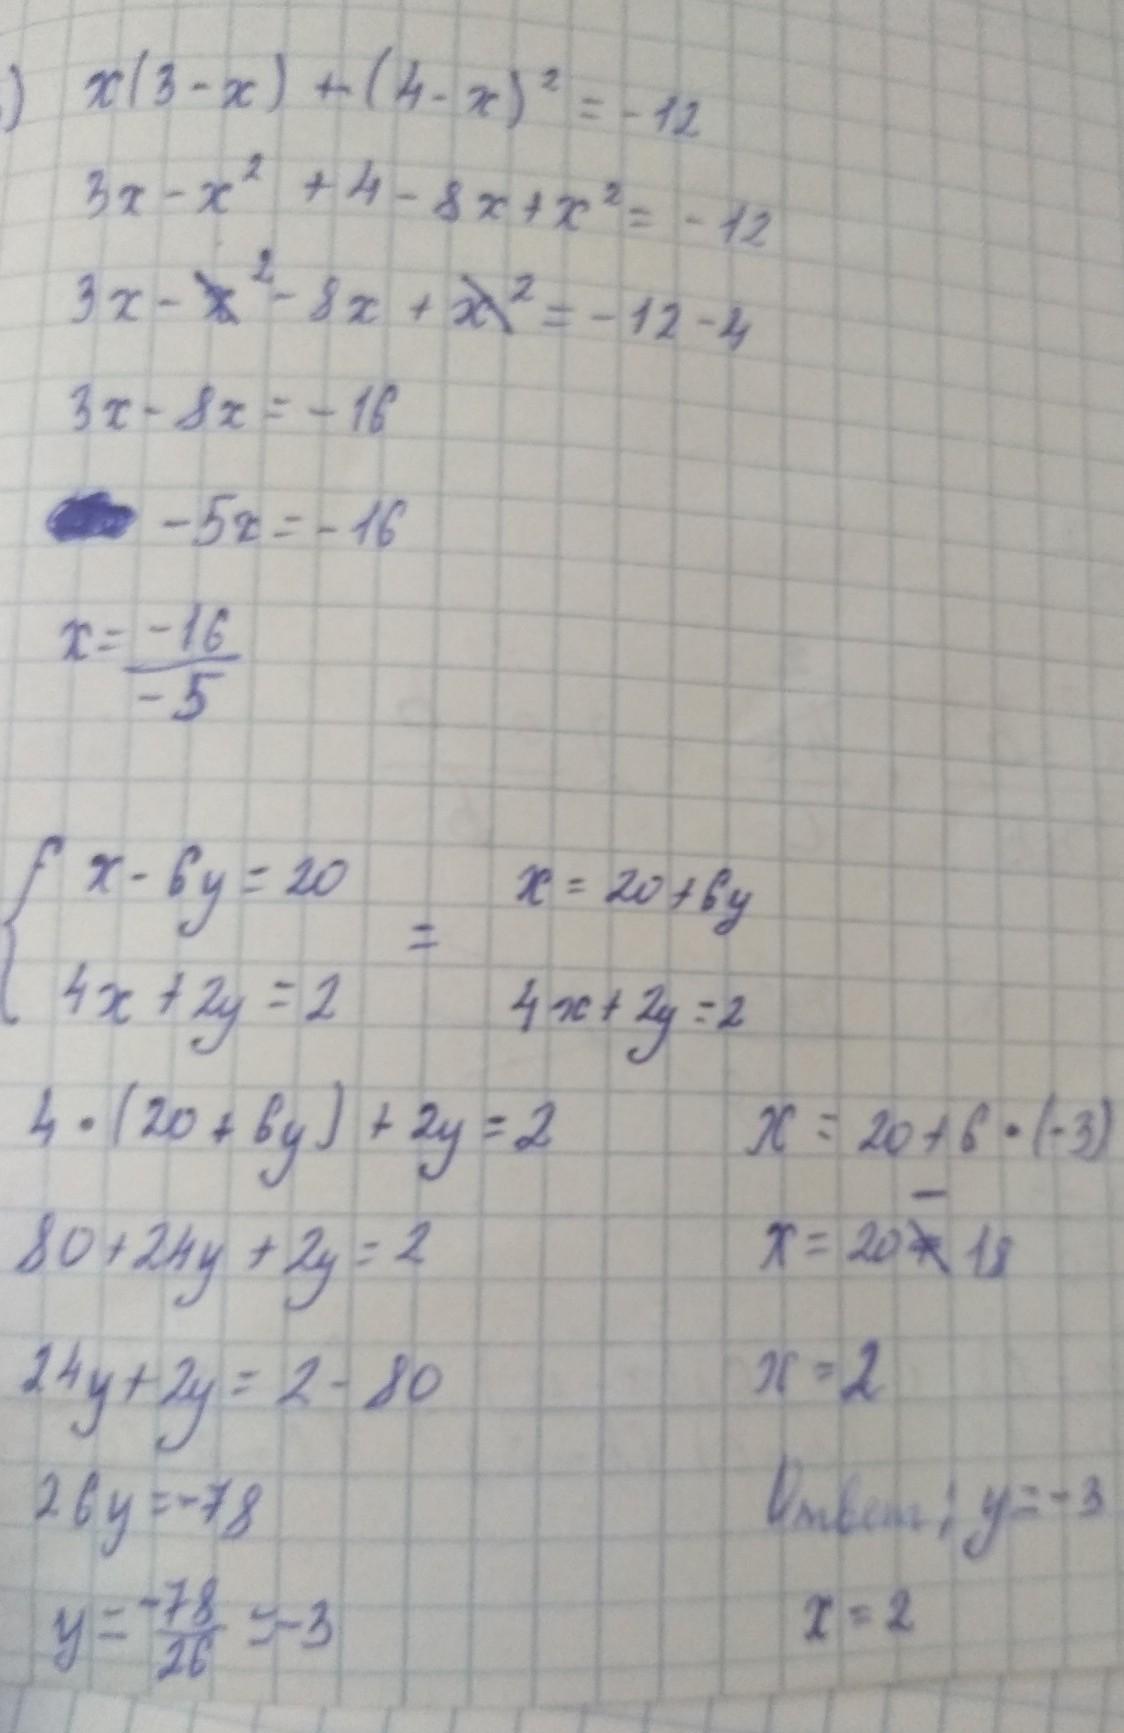 ) x(3-x) + (4-x)² = -12
3x - x² + 4 - 8x + x² = -12
3x - x² - 8x + x² = -12 - 4
3x - 8x = -16
-5x = -16
x = -16/-5
{ x - 6y = 20 = x = 20 + 6y
4x + 2y = 2 4x + 2y = 2
4 · (20 + 6y) + 2y = 2
80 + 24y + 2y = 2
24y + 2y = 2 - 80
26y = -78
y = -78/26 = -3
x = 20 + 6 · (-3)
x = 20 - 18
x = 2
Ответ: y = -3
x = 2